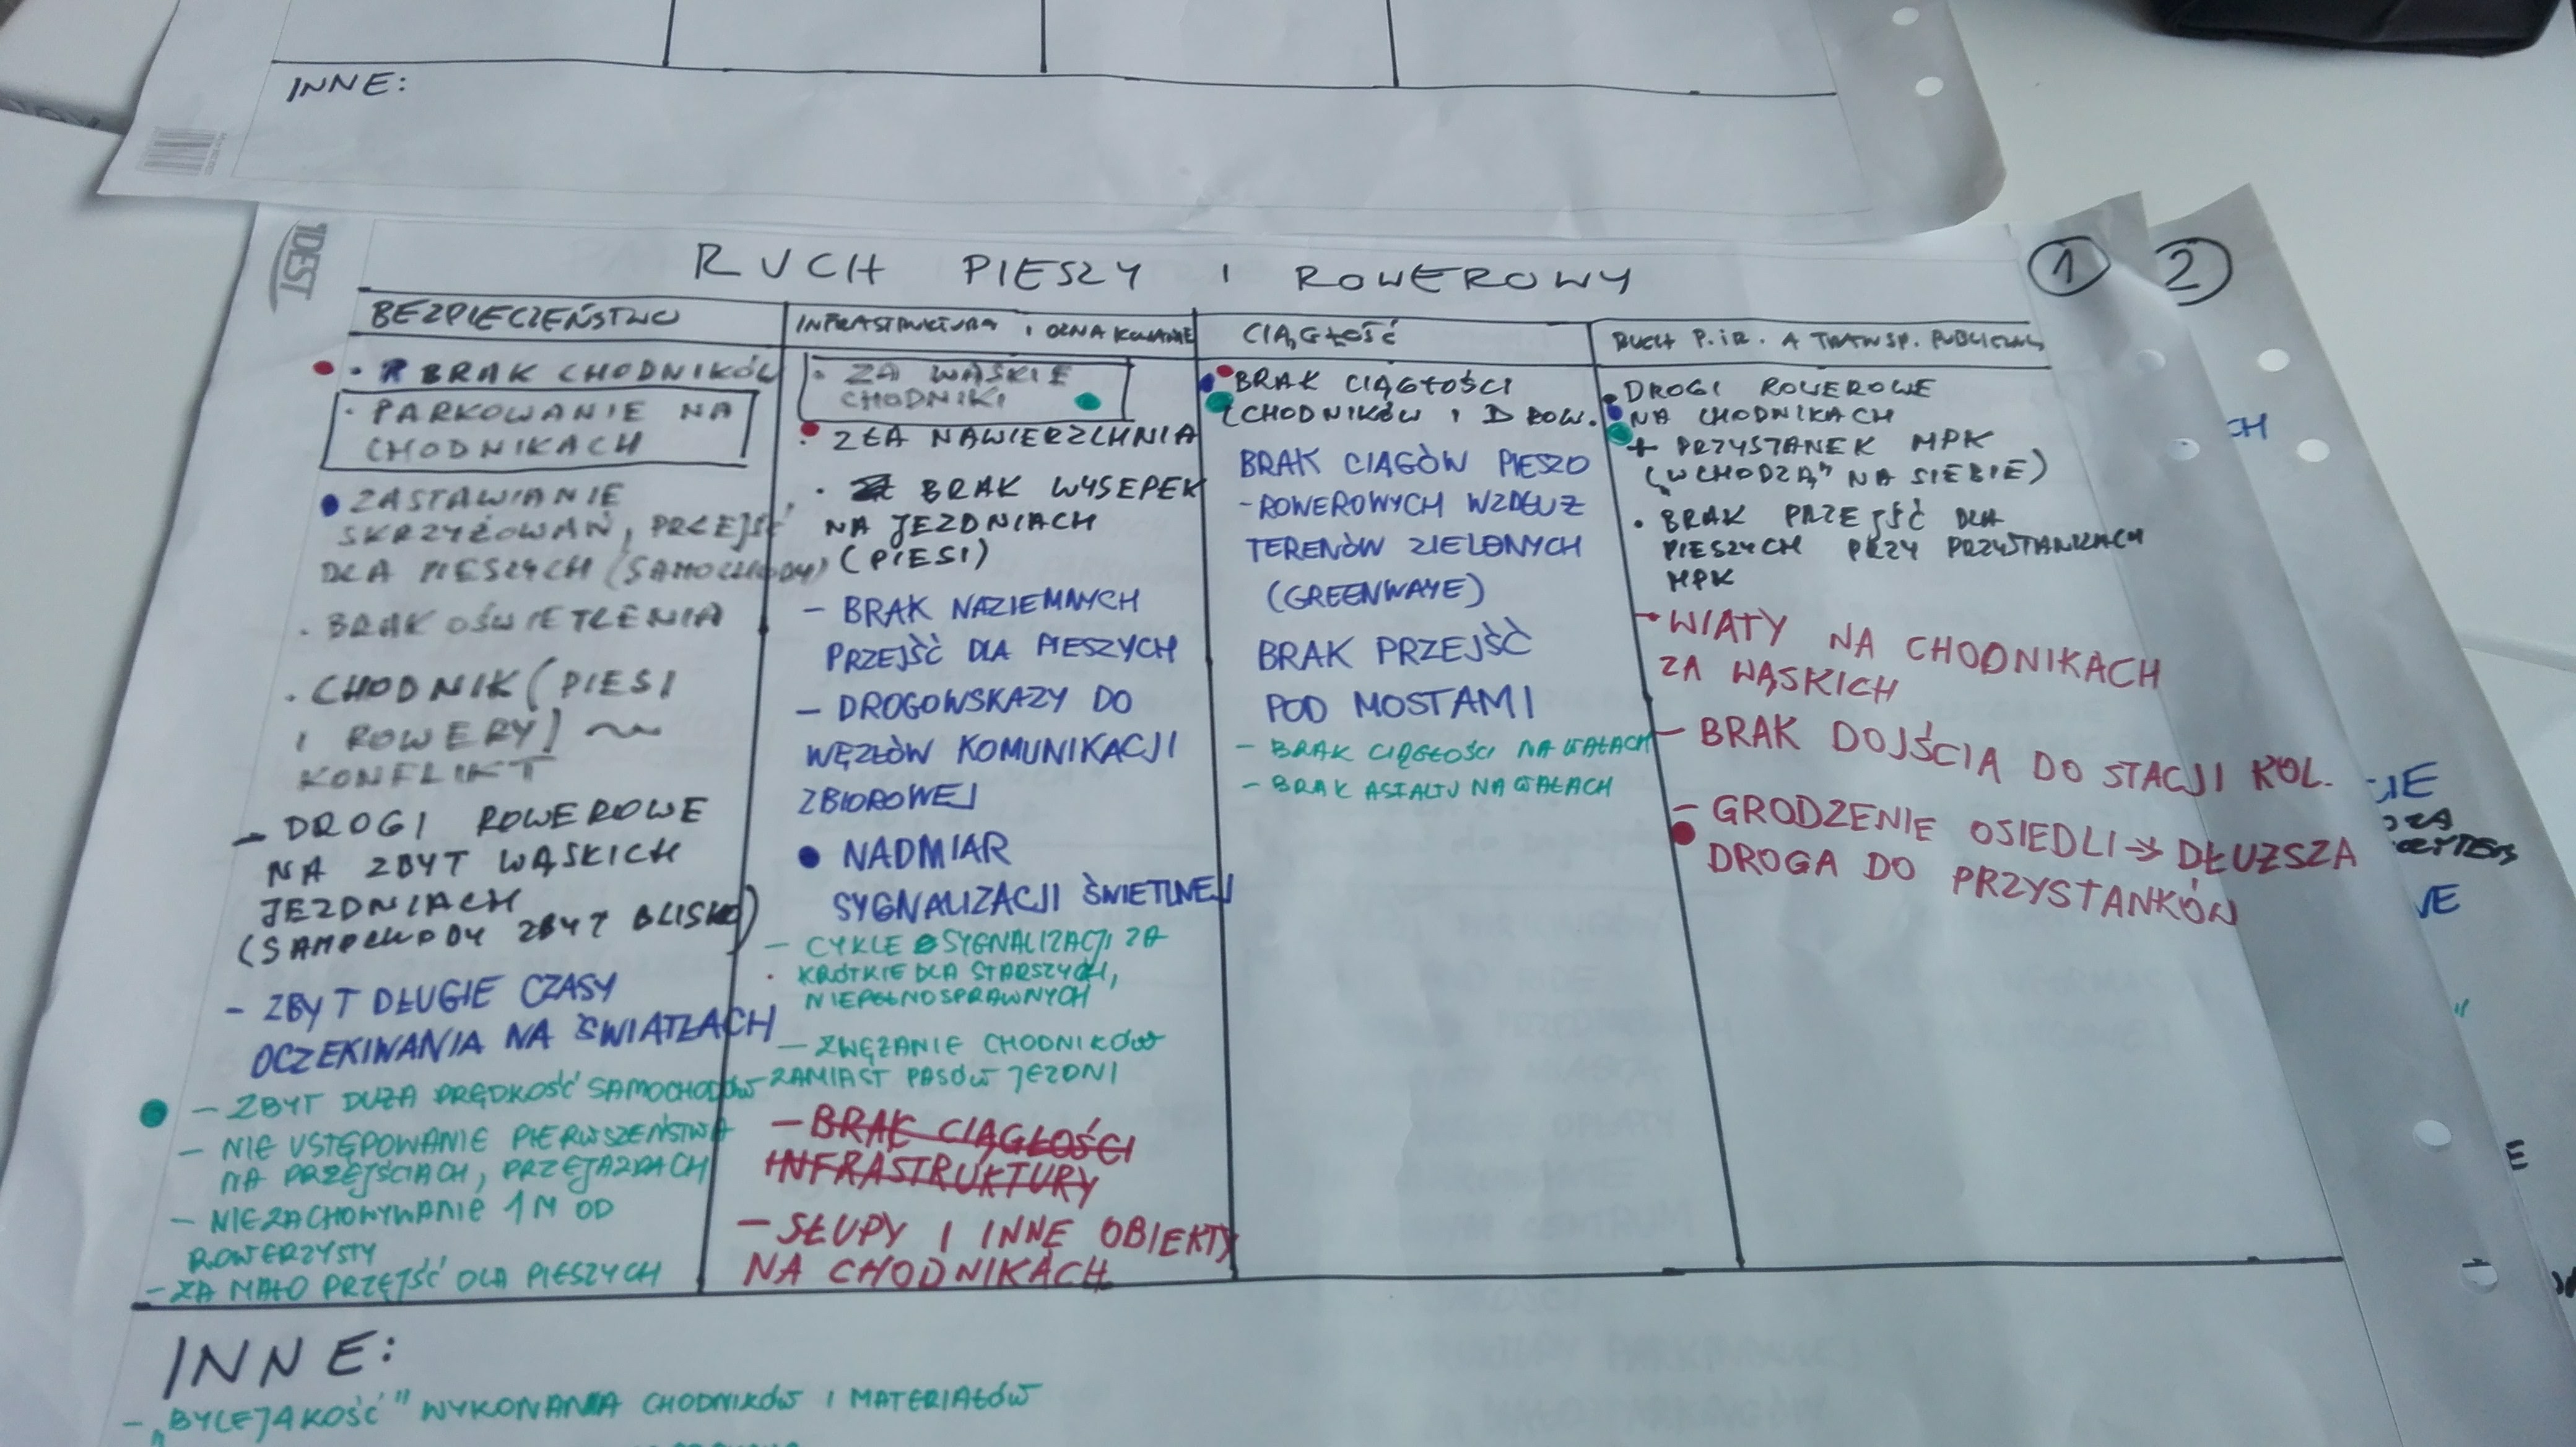 INNE:
1DEST
RUCH PIESZY I ROWEROWY
1
2
BEZPIECZEŃSTWO
• BRAK CHODNIKÓW
• PARKOWANIE NA
CHODNIKACH
ZASTAWIANIE
SKRZYŻOWAŃ, PRZEJŚĆ
DLA PIESZYCH (SAMOCHODY)
• BRAK OŚWIETLENIA
• CHODNIK (PIESI
I ROWERY)
KONFLIKT
- DROGI ROWEROWE
NA ZBYT WĄSKICH
JEZDNIACH
(SAMOCHODY ZBYT BLISKO)
- ZBYT DŁUGIE CZASY
OCZEKIWANIA NA ŚWIATŁACH
- ZBYT DUŻA PRĘDKOŚĆ SAMOCHODÓW
- NIE USTĘPOWANIE PIERWSZEŃSTWA
NA PRZEJŚCIACH, PRZEJAZDACH
- NIEZACHOWYWANIE 1M OD
ROWERZYSTY
- ZA MAŁO PRZEJŚĆ DLA PIESZYCH
INFRASTRUKTURA I OZNAKOWANIE
• ZA WĄSKIE
CHODNIKI
• ZŁA NAWIERZCHNIA
• BRAK WYSEPEK
NA JEZDNIACH
(PIESI)
- BRAK NAZIEMNYCH
PRZEJŚĆ DLA PIESZYCH
- DROGOWSKAZY DO
WĘZŁÓW KOMUNIKACJI
ZBIOROWEJ
• NADMIAR
SYGNALIZACJI ŚWIETLNEJ
- CYKLE SYGNALIZACJI ZA
KRÓTKIE DLA STARSZYCH,
NIEPEŁNOSPRAWNYCH
- ZWĘŻANIE CHODNIKÓW
ZAMIAST PASÓW JEZDNI
- BRAK CIĄGŁOŚCI
INFRASTRUKTURY
- SŁUPY I INNE OBIEKTY
NA CHODNIKACH
CIĄGŁOŚĆ
BRAK CIĄGŁOŚCI
(CHODNIKÓW I D ROW.
BRAK CIĄGÓW PIESZO
-ROWEROWYCH WZDŁUZ
TERENÓW ZIELONYCH
(GREENWAYE)
BRAK PRZEJŚĆ
POD MOSTAMI
- BRAK CIĄGŁOŚCI NA WAŁACH
- BRAK ASFALTU NA WAŁACH
RUCH P. i R. A TRANSP. PUBLICZNY
• DROGI ROWEROWE
NA CHODNIKACH
+ PRZYSTANEK MPK
(„WCHODZĄ" NA SIEBIE)
• BRAK PRZEJŚĆ DLA
PIESZYCH PRZY PRZYSTANKACH
MPK
- WIATY NA CHODNIKACH
ZA WĄSKICH
- BRAK DOJŚCIA DO STACJI KOL.
- GRODZENIE OSIEDLI → DŁUZSZA
DROGA DO PRZYSTANKÓW
INNE:
- „BYLEJAKOŚĆ" WYKONANIA CHODNIKÓW I MATERIAŁÓW
CH
VE
E